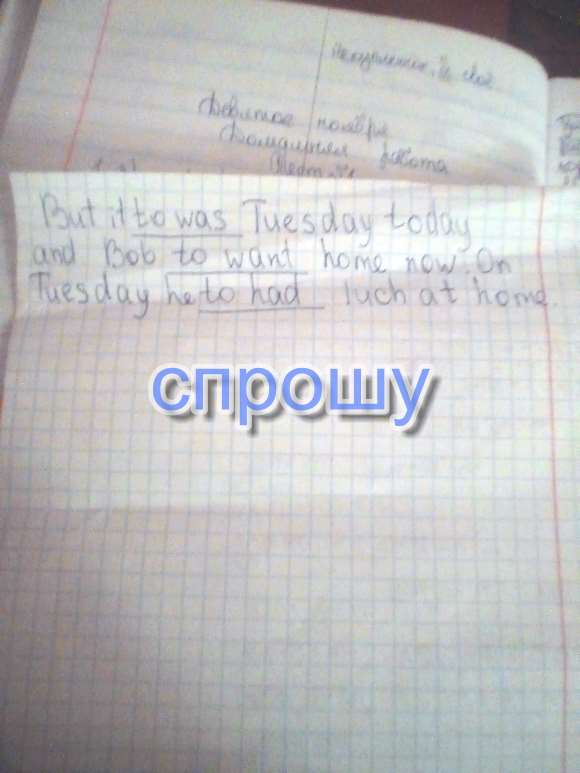 Девятое ноября
Домашняя работа
But it to was Tuesday today
and Bob to want home now. On
Tuesday he to had luch at home.
спрошу